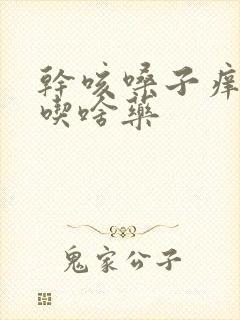 幹咳嗓子痒
喫啥藥
鬼家公子